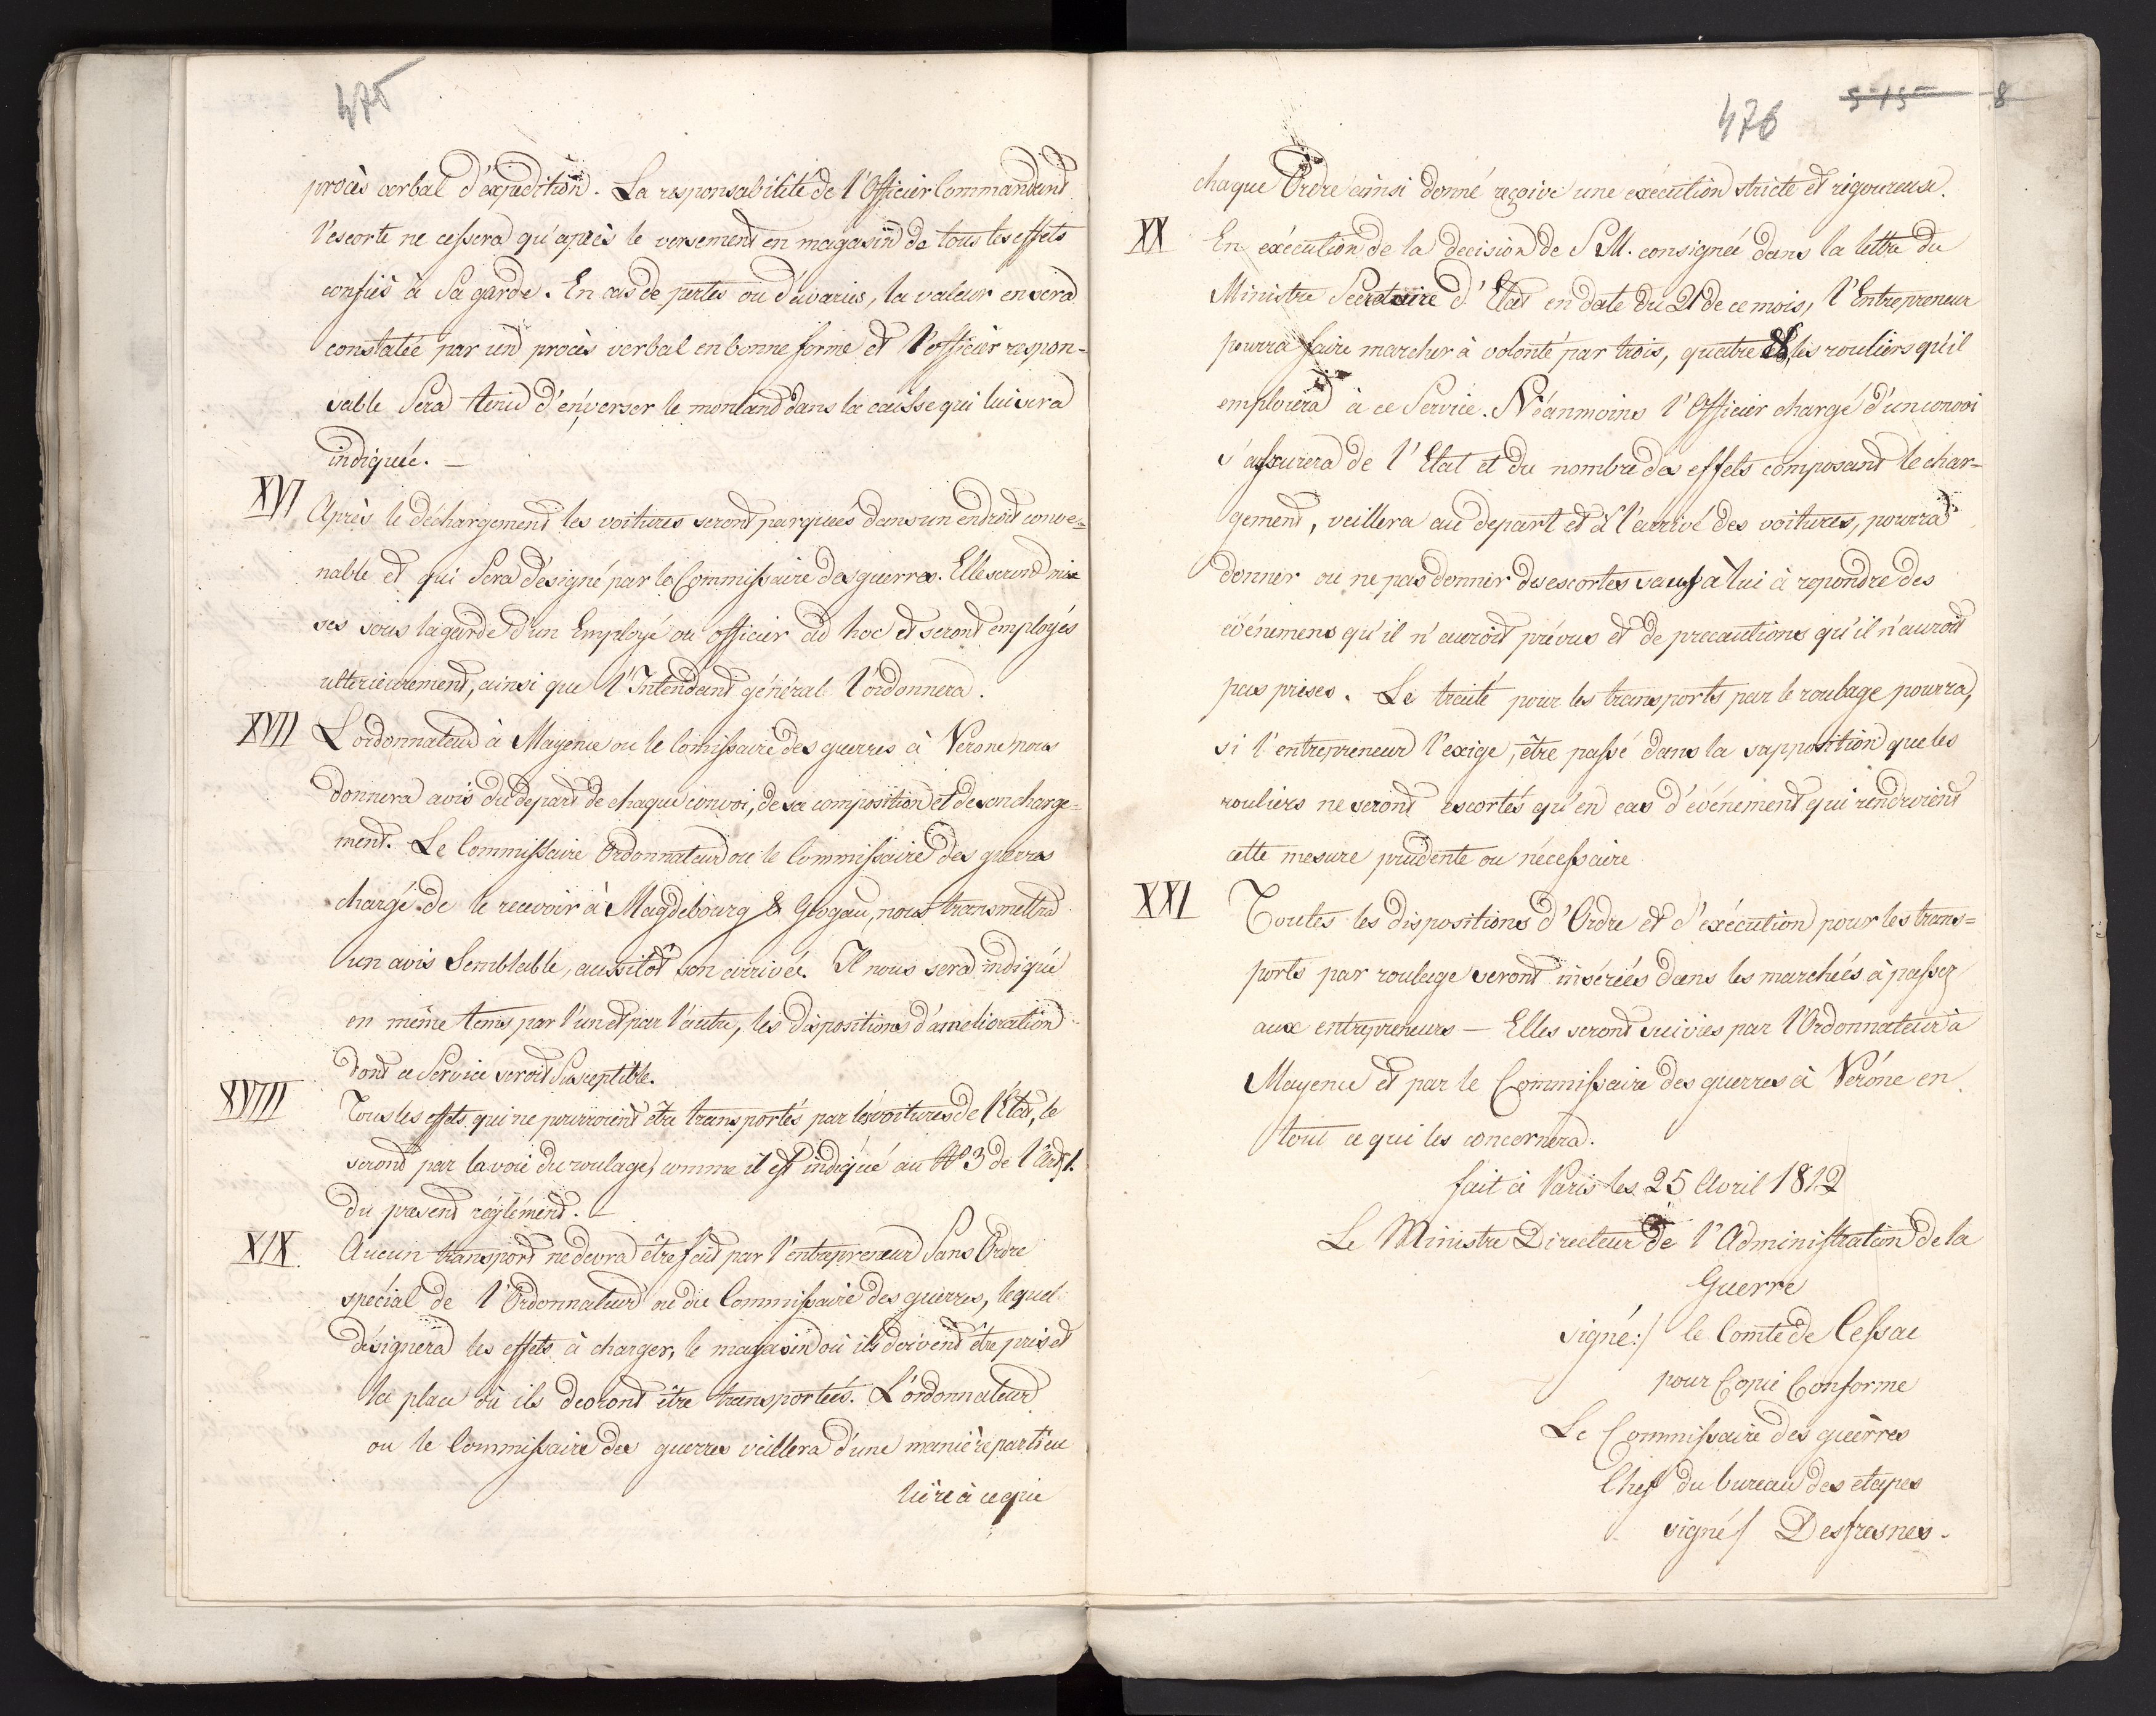 475
procès verbal d'expedition. La responsabilité de l'Officier Commandant
l'escorte ne cessera qu'après le versement en magasin de tous les effets
confiés à Sa garde. En cas de pertes ou d'avaries, la valeur en sera
constatée par un procès verbal en bonne forme et l'officier respon-
sable Sera tenu d'en verser le montant dans la caisse qui lui sera
indiquée. —
XVI
Après le déchargement les voitures seront parquées dans un endroit conve=
nable et qui Sera désigné par le Commissaire des guerres. Elle seront mi
ses sous la garde d'un Employé ou officier ad hoc et seront employés
ulterieurement, ainsi que l'Intendant général l'ordonnera.
XVII
L'ordonnateur à Mayence ou le Comissaire des guerres à Verone nous
donnera avis du depart de chaque convoi, de sa composition et de son charge-
ment. Le Commissaire Ordonnateur ou le Commissaire des guerres
chargé de le recevoir à Magdebourg & Glogau, nous transmettra
un avis Semblable, aussitôt son arrivée. Il nous sera indiqué
en même tems par l'un et par l'autre, les dispositions d'amelioration
dont ce Service seroit Susceptible.
XVIII
Tous les effets qui ne pourroient être transportés par les voitures de l'Etat, le
seront par la voie du roulage, comme il est indiqué au No 3 de l'Art. 1.
du present réglément. —
XIX
Aucun transport ne devra être fait par l'entrepreneur Sans Ordre
spécial de l'Ordonnateur ou du Commissaire des guerres, lequel
désignera les effets à charger, le magasin où ils doivent être pris et
la place où ils devront être transportés. L'ordonnateur
ou le Commissaire des guerres veillera d'une manière particu
lière à ce que
476
5 15 8
chaque Ordre ainsi donné reçoive une exécution stricte et rigoureuse.
XX
En exécution de la decision de S.M. consignée dans la lettre du
Ministre Secretaire d'Etat en date du 21 de ce mois, l'Entrepreneur
pourra faire marcher à volonté par trois, quatre & les rouliers qu'il
emploiera à ce Service. Néanmoins l'Officier chargé d'un convoi
s'assurera de l'Etat et du nombre des effets composant le char-
gement, veillera au depart et à l'arrivé des voitures, pourra
donner ou ne pas donner des escortes sauf à lui à repondre des
événimens qu'il n'auroit prévus et de precautions qu'il n'auroit
pas prises. Le traité pour les transports par le roulage pourra,
si l'entrepreneur l'exige, être passé dans la supposition que les
rouliers ne seront escortés qu'en cas d'événement qui rendroient
cette mesure prudente ou nécessaire
XXI
Toutes les dispositions d'Ordre et d'exécution pour les trans=
ports par roulage seront insérées dans les marchés à passer
aux entrepreneurs — Elles seront suivies par l'Ordonnateur à
Mayence et par le Commissaire des guerres à Vérone en
tout ce qui les concernera.
fait à Paris les 25 Avril 1812
Le Ministre Directeur de l'Administration de la
Guerre
signé:/ le Comte de Cessac
pour Copie Conforme
Le Commissaire des guerres
Chef du bureau des etapes
signé/ Desfresnes.